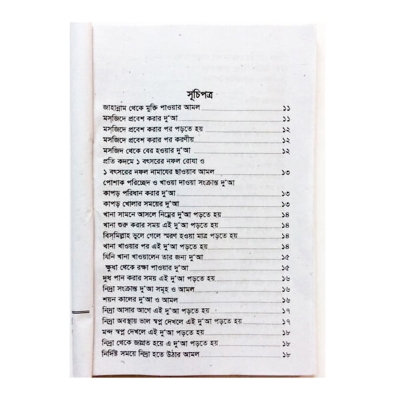 সূচিপত্র
জাহান্নাম থেকে মুক্তি পাওয়ার আমল ১১
মসজিদে প্রবেশ করার দু'আ ১১
মসজিদে প্রবেশ করার পর পড়তে হয় ১২
মসজিদে প্রবেশ করার পর করণীয় ১২
মসজিদ থেকে বের হওয়ার দু'আ ১২
প্রতি কদমে ১ বৎসরের নফল রোযা ও
১ বৎসরের নফল নামাযের ছাওয়াব আমল ১৩
পোশাক পরিচ্ছেদ ও খাওয়া দাওয়া সংক্রান্ত দু'আ
কাপড় পরিধান করার দু'আ ১৩
কাপড় খোলার সময়ের দু'আ ১৩
খানা সামনে আসলে নিম্নের দু'আ পড়তে হয় ১৪
খানা শুরু করার সময় এই দু'আ পড়তে হয় ১৪
বিসমিল্লাহ ভুলে গেলে স্মরণ হওয়া মাত্র পড়তে হয় ১৪
খানা খাওয়ার পর এই দু'আ পড়তে হয় ১৪
যিনি খানা খাওয়ালেন তার জন্য দু'আ ১৫
ক্ষুধা থেকে রক্ষা পাওয়ার দু'আ ১৫
দুধ পান করার সময় এই দু'আ পড়তে হয় ১৬
নিদ্রা সংক্রান্ত দু'আ সমূহ ও আমল ১৬
শয়ন কালের দু'আ ও আমল ১৬
নিদ্রা আসার আগে এই দু'আ পড়তে হয় ১৬
নিদ্রা অবস্থায় ভাল স্বপ্ন দেখলে এই দু'আ পড়তে হয় ১৭
মন্দ স্বপ্ন দেখলে এই দু'আ পড়তে হয় ১৮
নিদ্রা থেকে জাগ্রত হয়ে এ দু'আ পড়তে হয় ১৮
নির্দিষ্ট সময়ে নিদ্রা হতে উঠার আমল ১৮